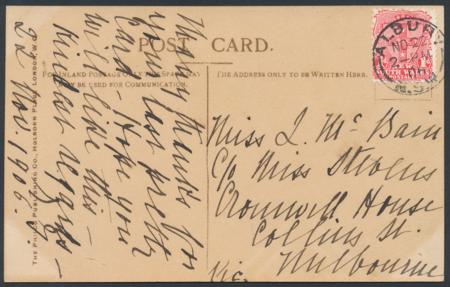 POST CARD.
FOR INLAND POSTAGE ONLY THIS SPACE MAY
BE USED FOR COMMUNICATION.
THE ADDRESS ONLY TO BE WRITTEN HERE.
THE PHILCO PUBLISHING CO., HOLBORN PLACE, LONDON, W.C.
Many thanks for
your last pretty
card - hope you
will like this -
Kindest regards -
22 Nov. 1906.
ALBURY
NO 22
N.S.W
Miss L. McBain
C/o Miss Stevens
Cromwell House
Collins St.
Melbourne
Vic.